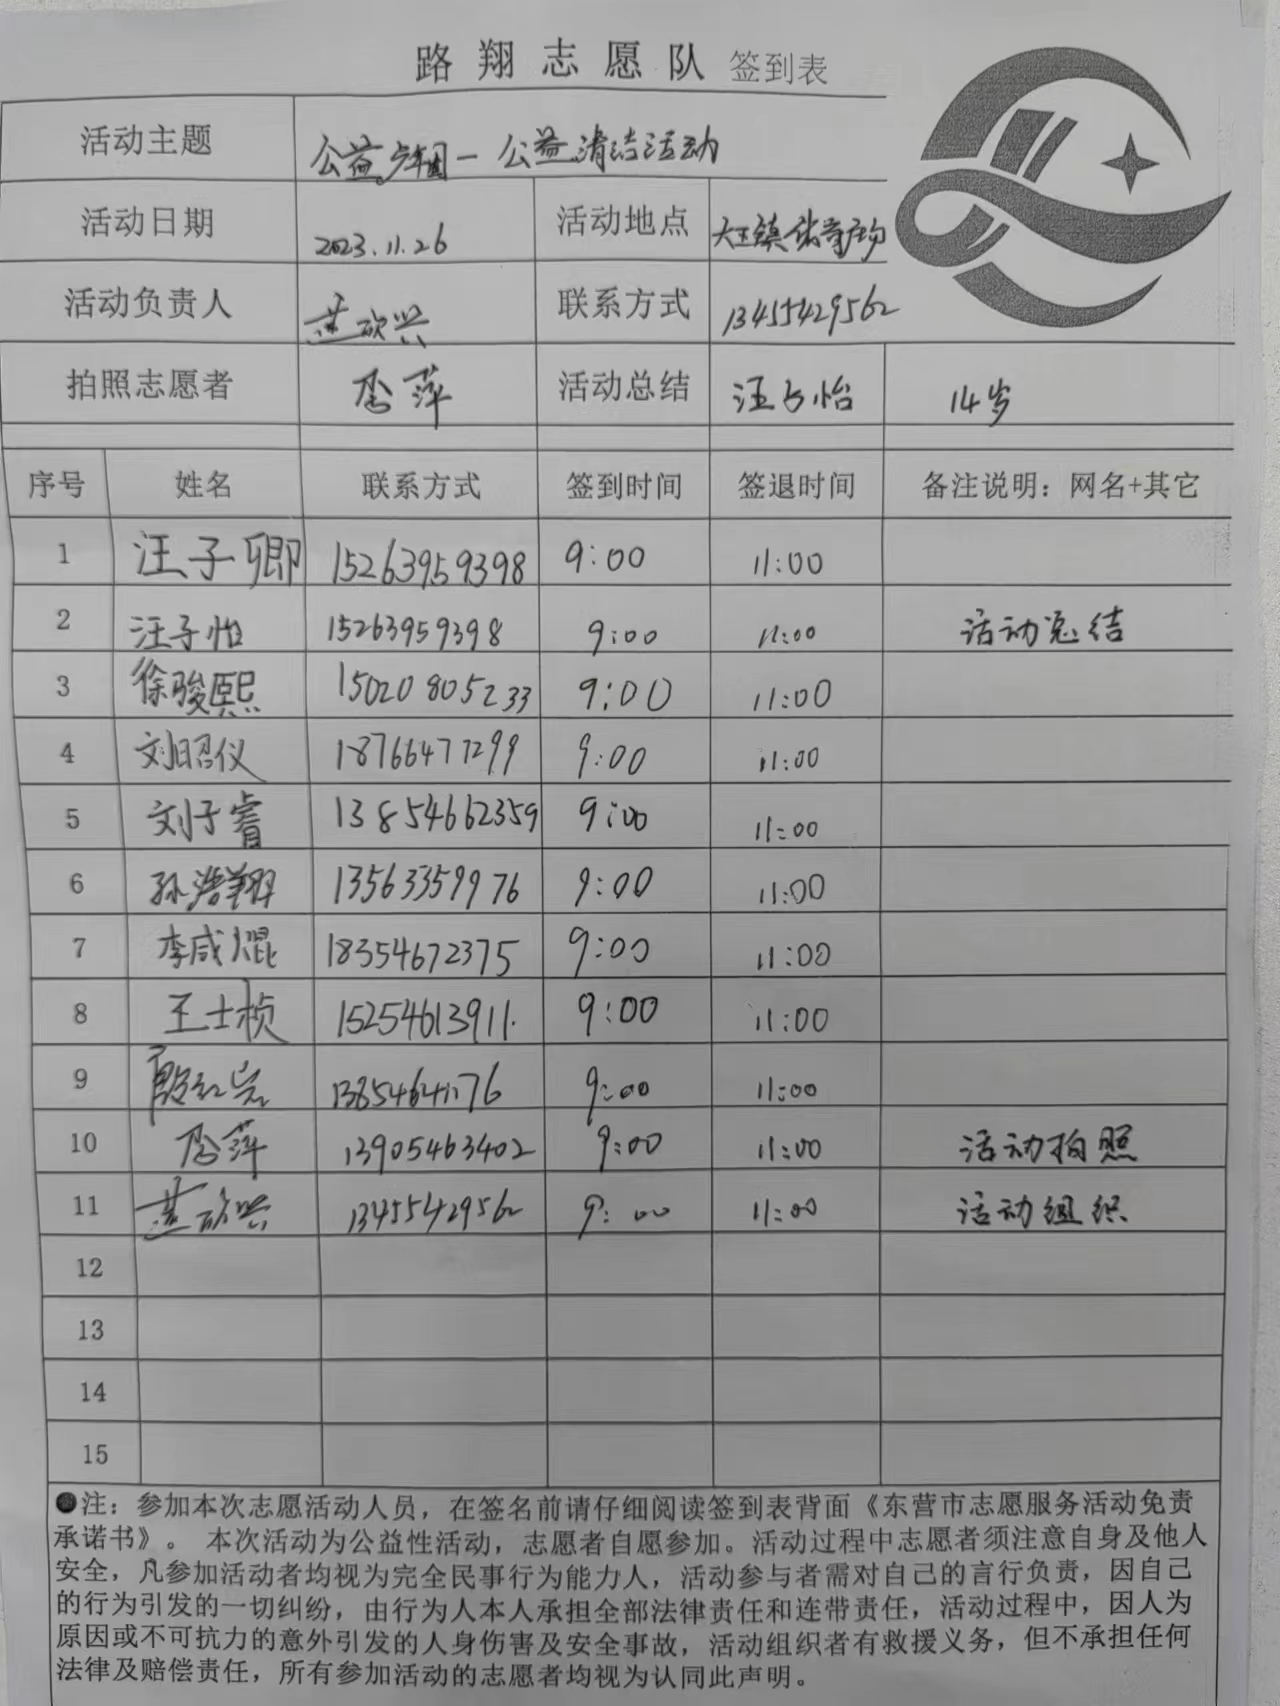 路翔志愿队 签到表
活动主题 公益 — 公益清洁活动
活动日期 2023.11.26 活动地点 大王镇
活动负责人 联系方式 13455429562
拍照志愿者 李萍 活动总结 汪子怡 14岁
序号 姓名 联系方式 签到时间 签退时间 备注说明：网名+其它
1 汪子卿 15263959398 9:00 11:00
2 汪子怡 15263959398 9:00 11:00 活动总结
3 徐骏熙 15020805233 9:00 11:00
4 刘昭仪 18766477299 9:00 11:00
5 刘子睿 13854662359 9:00 11:00
6 孙浩翔 13563359976 9:00 11:00
7 李咸焜 18354672375 9:00 11:00
8 王士桢 15254613911. 9:00 11:00
9 9:00 11:00
10 李萍 13905463402 9:00 11:00 活动拍照
11 13455429562 9:00 11:00 活动组织
12
13
14
15
●注：参加本次志愿活动人员，在签名前请仔细阅读签到表背面《东营市志愿服务活动免责
承诺书》。 本次活动为公益性活动，志愿者自愿参加。活动过程中志愿者须注意自身及他人
安全，凡参加活动者均视为完全民事行为能力人，活动参与者需对自己的言行负责，因自己
的行为引发的一切纠纷，由行为人本人承担全部法律责任和连带责任，活动过程中，因人为
原因或不可抗力的意外引发的人身伤害及安全事故，活动组织者有救援义务，但不承担任何
法律及赔偿责任，所有参加活动的志愿者均视为认同此声明。